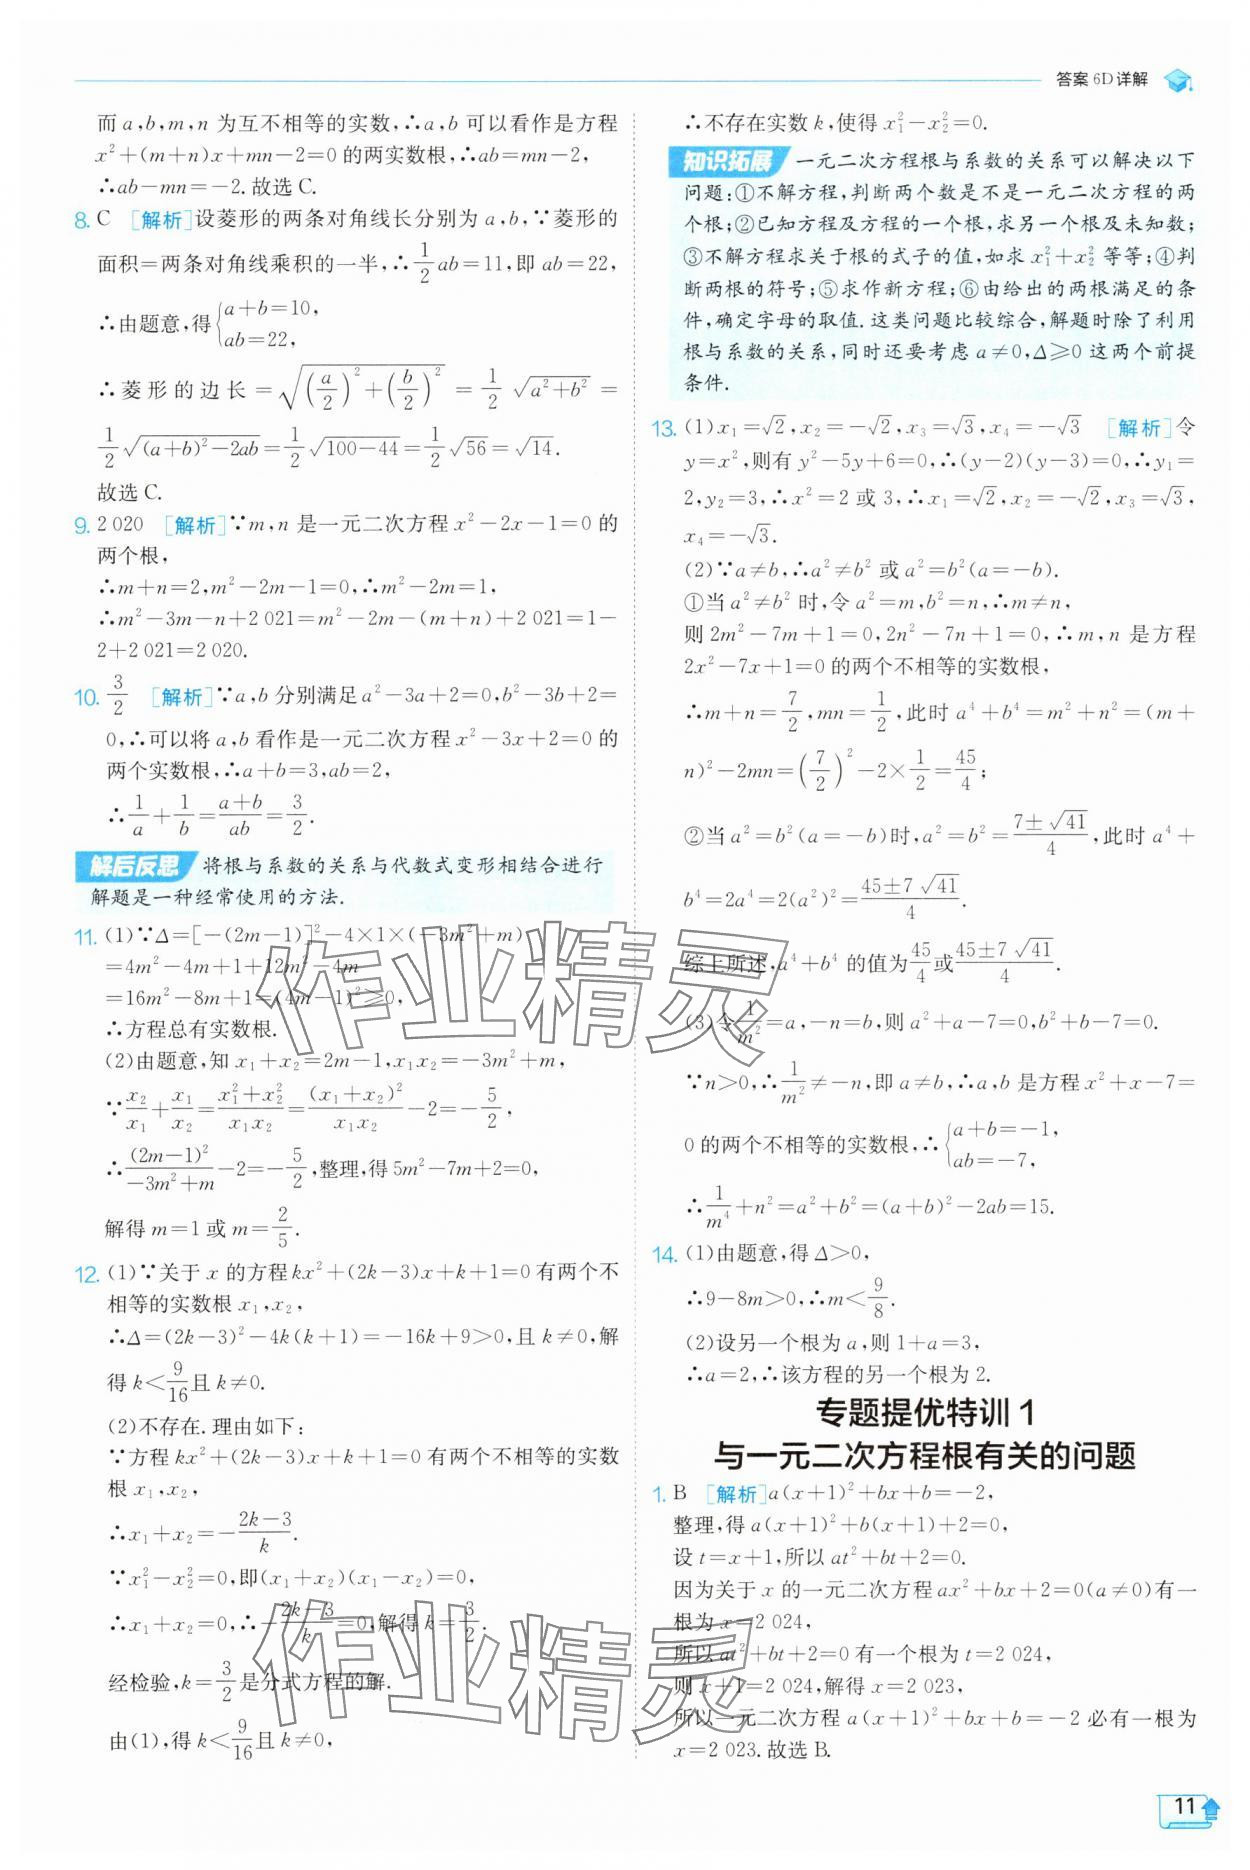 答案 6D详解
而 a,b,m,n 为互不相等的实数,∴a,b 可以看作是方程
x²+(m+n)x+mn-2=0 的两实数根,∴ab=mn-2,
∴ab-mn=-2.故选 C.
8. C [解析]设菱形的两条对角线长分别为 a,b,∵菱形的
面积=两条对角线乘积的一半,∴1/2 ab=11,即 ab=22,
∴由题意,得{a+b=10, ab=22,
∴菱形的边长=√((a/2)²+(b/2)²)=1/2 √(a²+b²)=
1/2 √((a+b)²-2ab)=1/2 √(100-44)=1/2 √56=√14.
故选 C.
9. 2 020 [解析]∵m,n 是一元二次方程 x²-2x-1=0 的
两个根,
∴m+n=2,m²-2m-1=0,∴m²-2m=1,
∴m²-3m-n+2 021=m²-2m-(m+n)+2 021=1-
2+2 021=2 020.
10. 3/2 [解析]∵a,b 分别满足 a²-3a+2=0,b²-3b+2=
0,∴可以将 a,b 看作是一元二次方程 x²-3x+2=0 的
两个实数根,∴a+b=3,ab=2,
∴1/a+1/b=(a+b)/ab=3/2.
解后反思 将根与系数的关系与代数式变形相结合进行
解题是一种经常使用的方法.
11. (1)∵Δ=[-(2m-1)]²-4×1×(-3m²+m)
=4m²-4m+1+12m²-4m
=16m²-8m+1=(4m-1)²≥0,
∴方程总有实数根.
(2)由题意,知 x₁+x₂=2m-1,x₁x₂=-3m²+m,
∵x₂/x₁+x₁/x₂=(x₁²+x₂²)/x₁x₂=(x₁+x₂)²/x₁x₂-2=-5/2,
∴(2m-1)²/(-3m²+m)-2=-5/2,整理,得 5m²-7m+2=0,
解得 m=1 或 m=2/5.
12. (1)∵关于 x 的方程 kx²+(2k-3)x+k+1=0 有两个不
相等的实数根 x₁,x₂,
∴Δ=(2k-3)²-4k(k+1)=-16k+9>0,且 k≠0,解
得 k<9/16且 k≠0.
(2)不存在.理由如下:
∵方程 kx²+(2k-3)x+k+1=0 有两个不相等的实数
根 x₁,x₂,
∴x₁+x₂=-(2k-3)/k.
∵x₁²-x₂²=0,即(x₁+x₂)(x₁-x₂)=0,
∴x₁+x₂=0,∴-(2k-3)/k=0,解得 k=3/2.
经检验,k=3/2是分式方程的解.
由(1),得 k<9/16且 k≠0,
∴不存在实数 k,使得 x₁²-x₂²=0.
知识拓展 一元二次方程根与系数的关系可以解决以下
问题:①不解方程,判断两个数是不是一元二次方程的两
个根;②已知方程及方程的一个根,求另一个根及未知数;
③不解方程求关于根的式子的值,如求 x₁²+x₂² 等等;④判
断两根的符号;⑤求作新方程;⑥由给出的两根满足的条
件,确定字母的取值.这类问题比较综合,解题时除了利用
根与系数的关系,同时还要考虑 a≠0,Δ≥0 这两个前提
条件.
13. (1)x₁=√2,x₂=-√2,x₃=√3,x₄=-√3 [解析]令
y=x²,则有 y²-5y+6=0,∴(y-2)(y-3)=0,∴y₁=
2,y₂=3,∴x²=2 或 3,∴x₁=√2,x₂=-√2,x₃=√3,
x₄=-√3.
(2)∵a≠b,∴a²≠b² 或 a²=b²(a=-b).
①当 a²≠b² 时,令 a²=m,b²=n,∴m≠n,
则 2m²-7m+1=0,2n²-7n+1=0,∴m,n 是方程
2x²-7x+1=0 的两个不相等的实数根,
∴m+n=7/2,mn=1/2,此时 a⁴+b⁴=m²+n²=(m+
n)²-2mn=(7/2)²-2×1/2=45/4;
②当 a²=b²(a=-b)时,a²=b²=(7±√41)/4,此时 a⁴+
b⁴=2a⁴=2(a²)²=(45±7√41)/4.
综上所述,a⁴+b⁴ 的值为45/4或(45±7√41)/4.
(3)令1/m²=a,-n=b,则 a²+a-7=0,b²+b-7=0.
∵n>0,∴1/m²≠-n,即 a≠b,∴a,b 是方程 x²+x-7=
0 的两个不相等的实数根,∴{a+b=-1, ab=-7,
∴1/m⁴+n²=a²+b²=(a+b)²-2ab=15.
14. (1)由题意,得 Δ>0,
∴9-8m>0,∴m<9/8.
(2)设另一个根为 a,则 1+a=3,
∴a=2,∴该方程的另一个根为 2.
专题提优特训 1
与一元二次方程根有关的问题
1. B [解析]a(x+1)²+bx+b=-2,
整理,得 a(x+1)²+b(x+1)+2=0,
设 t=x+1,所以 at²+bt+2=0.
因为关于 x 的一元二次方程 ax²+bx+2=0(a≠0)有一
根为 x=2 024,
所以 at²+bt+2=0 有一个根为 t=2 024,
则 x+1=2 024,解得 x=2 023,
所以一元二次方程 a(x+1)²+bx+b=-2 必有一根为
x=2 023.故选 B.
11
作业精灵
作业精灵